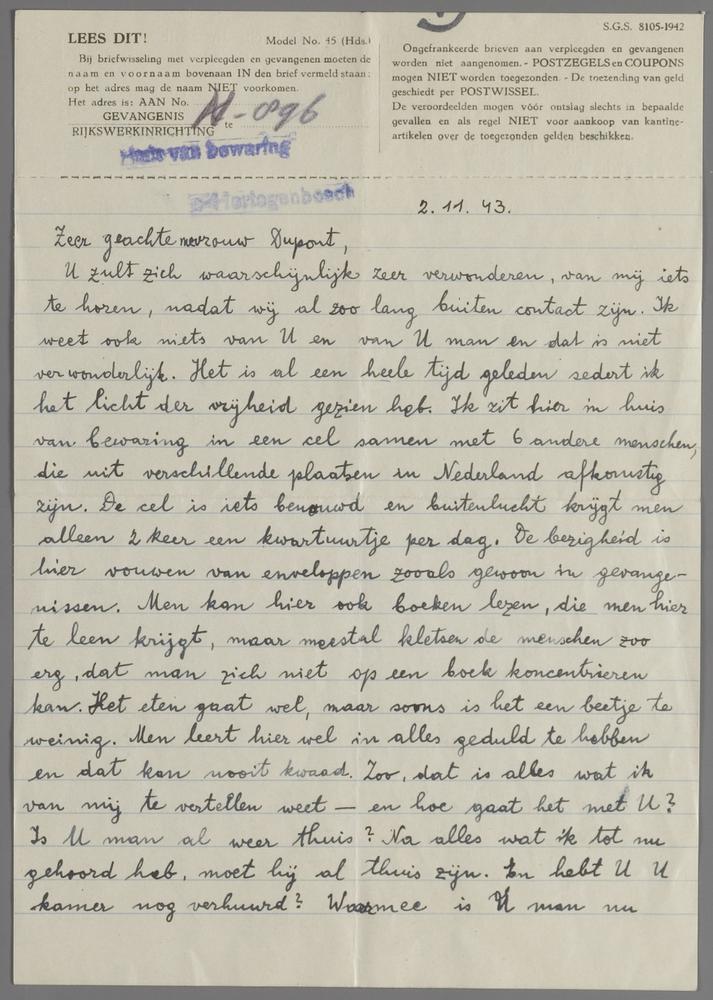 S.G.S. 8105-1942
LEES DIT!
Model No. 45 (Hds.)
Bij briefwisseling met verpleegden en gevangenen moeten de
naam en voornaam bovenaan IN den brief vermeld staan:
op het adres mag de naam NIET voorkomen.
Het adres is: AAN No. H-896
GEVANGENIS
RIJKSWERKINRICHTING te
Huis van bewaring
s-Hertogenbosch
Ongefrankeerde brieven aan verpleegden en gevangenen
worden niet aangenomen. - POSTZEGELS en COUPONS
mogen NIET worden toegezonden. - De toezending van geld
geschiedt per POSTWISSEL.
De veroordeelden mogen vóór ontslag slechts in bepaalde
gevallen en als regel NIET voor aankoop van kantine-
artikelen over de toegezonden gelden beschikken.
2.11.43.
Zeer geachte mevrouw Dupont,
U zult zich waarschijnlijk zeer verwonderen, van mij iets
te horen, nadat wij al zoo lang buiten contact zijn. Ik
weet ook niets van U en van U man en dat is niet
verwonderlijk. Het is al een heele tijd geleden sedert ik
het licht der vrijheid gezien heb. Ik zit hier in huis
van bewaring in een cel samen met 6 andere menschen,
die uit verschillende plaatsen in Nederland afkomstig
zijn. De cel is iets benauwd en buitenlucht krijgt men
alleen 2 keer een kwartuurtje per dag. De bezigheid is
hier vouwen van enveloppen zooals gewoon in gevange-
nissen. Men kan hier ook boeken lezen, die men hier
te leen krijgt, maar meestal kletsen de menschen zoo
erg, dat man zich niet op een boek koncentrieren
kan. Het eten gaat wel, maar soms is het een beetje te
weinig. Men leert hier wel in alles geduld te hebben
en dat kan nooit kwaad. Zoo, dat is alles wat ik
van mij te vertellen weet — en hoe gaat het met U?
Is U man al weer thuis? Na alles wat ik tot nu
gehoord heb, moet hij al thuis zijn. En hebt U U
kamer nog verhuurd? Waarmee is U man nu